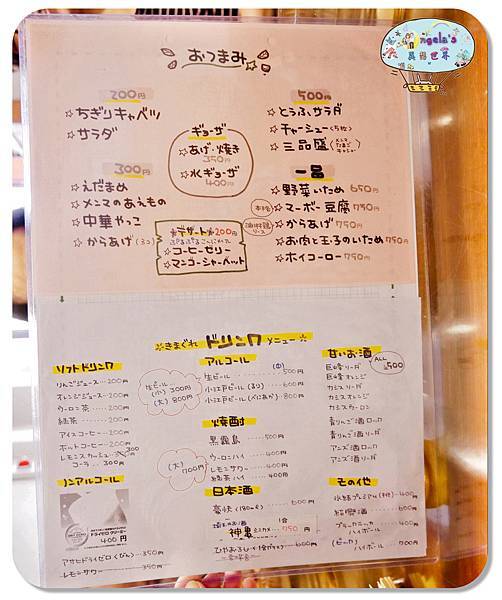 Angela's
異想世界
おつまみ
200円
☆ちぎりキャベツ
☆サラダ
300円
☆えだまめ
☆メンマのあえもの
☆中華やっこ
☆からあげ(3コ)
ギョーザ
☆あげ・焼き
350円
☆水ギョーザ
400円
デザート 200円
☆コーヒーゼリー
☆マンゴーシャーベット
500円
☆とうふサラダ
☆チャーシュー(5枚)
☆三品盛
メンマ
たまご
チャシュー
一品
☆野菜いため 650円
本格
☆マーボー豆腐 750円
☆からあげ 750円
☆お肉と玉子のいため 750円
☆ホイコーロー 750円
☆きまぐれ ドリンクメニュー☆
ソフトドリンク
りんごジュース 200円
オレンジジュース 200円
ウーロン茶 200円
紅茶 200円
アイスコーヒー 200円
ホットコーヒー 200円
レモンスカッシュ 300
コーラ 300円
ノンアルコール
400円
アサヒドライゼロ(びん) 350円
レモンサワー 350円
アルコール
生ビール (中) 500円
小江戸ビール(るり) 600円
小江戸ビール(べにあか) 800円
生ビール
(小) 300円
(大) 800円
焼酎
黒霧島 500円
ウーロンハイ 400円
レモンサワー 400円
緑茶ハイ 400円
(大)
700円
日本酒
豪快(180ml) 600円
神亀 750円
600円
甘いお酒
ALL
500
巨峰ソーダ
巨峰オレンジ
カシスソーダ
カシスオレンジ
カシスウーロン
青りんご酒ロック
青りんご酒ソーダ
アンズ酒ロック
アンズ酒ソーダ
その他
400円
紹興酒 600円
ブラックニッカ
ハイボール 400円
ハイボール 700円